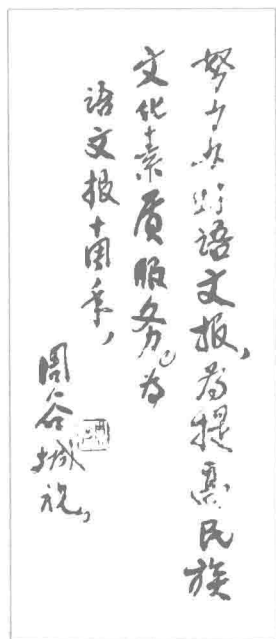 努力办好语文报，为提高民族
文化素质服务。为
语文报十周年，
周谷城祝，